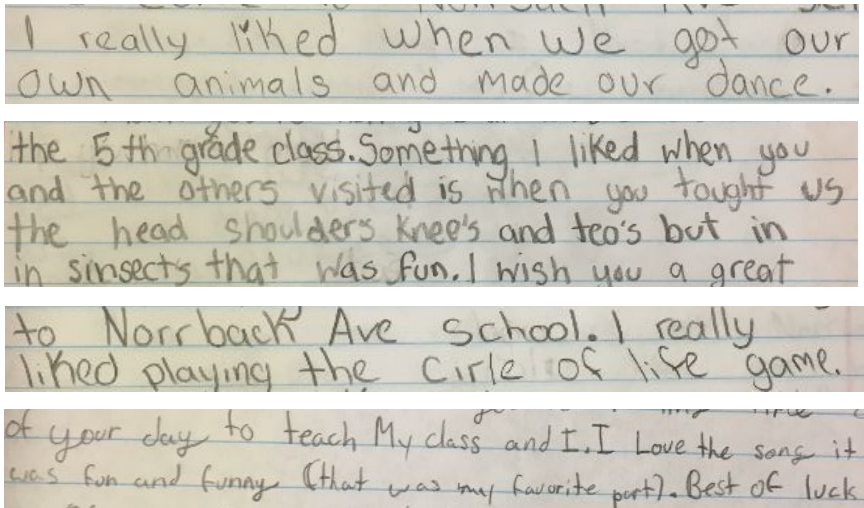 I really liked when we got our
own animals and made our dance.
the 5th grade class. Something I liked when you
and the others visited is when you tought us
the head shoulders knee's and teo's but in
in sinsects that was fun. I wish you a great
to Norrback Ave School. I really
liked playing the cirle of life game.
of your day to teach My class and I. I Love the song it
was fun and funny (that was my favorite part). Best of luck